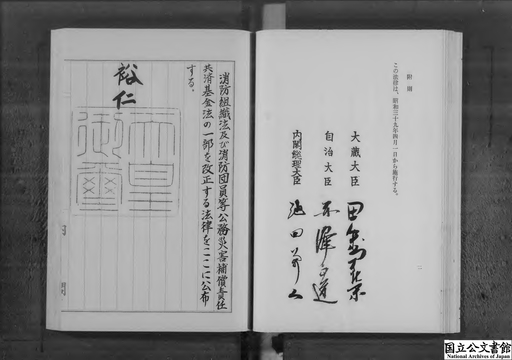 附則
この法律は、昭和三十九年四月一日から施行する。
大蔵大臣 田中角栄
自治大臣 赤澤正道
内閣総理大臣 池田勇人
二
消防組織法及び消防団員等公務災害補償責任
共済基金法の一部を改正する法律をここに公布
する。
裕仁
天皇
御璽
国立公文書館
National Archives of Japan